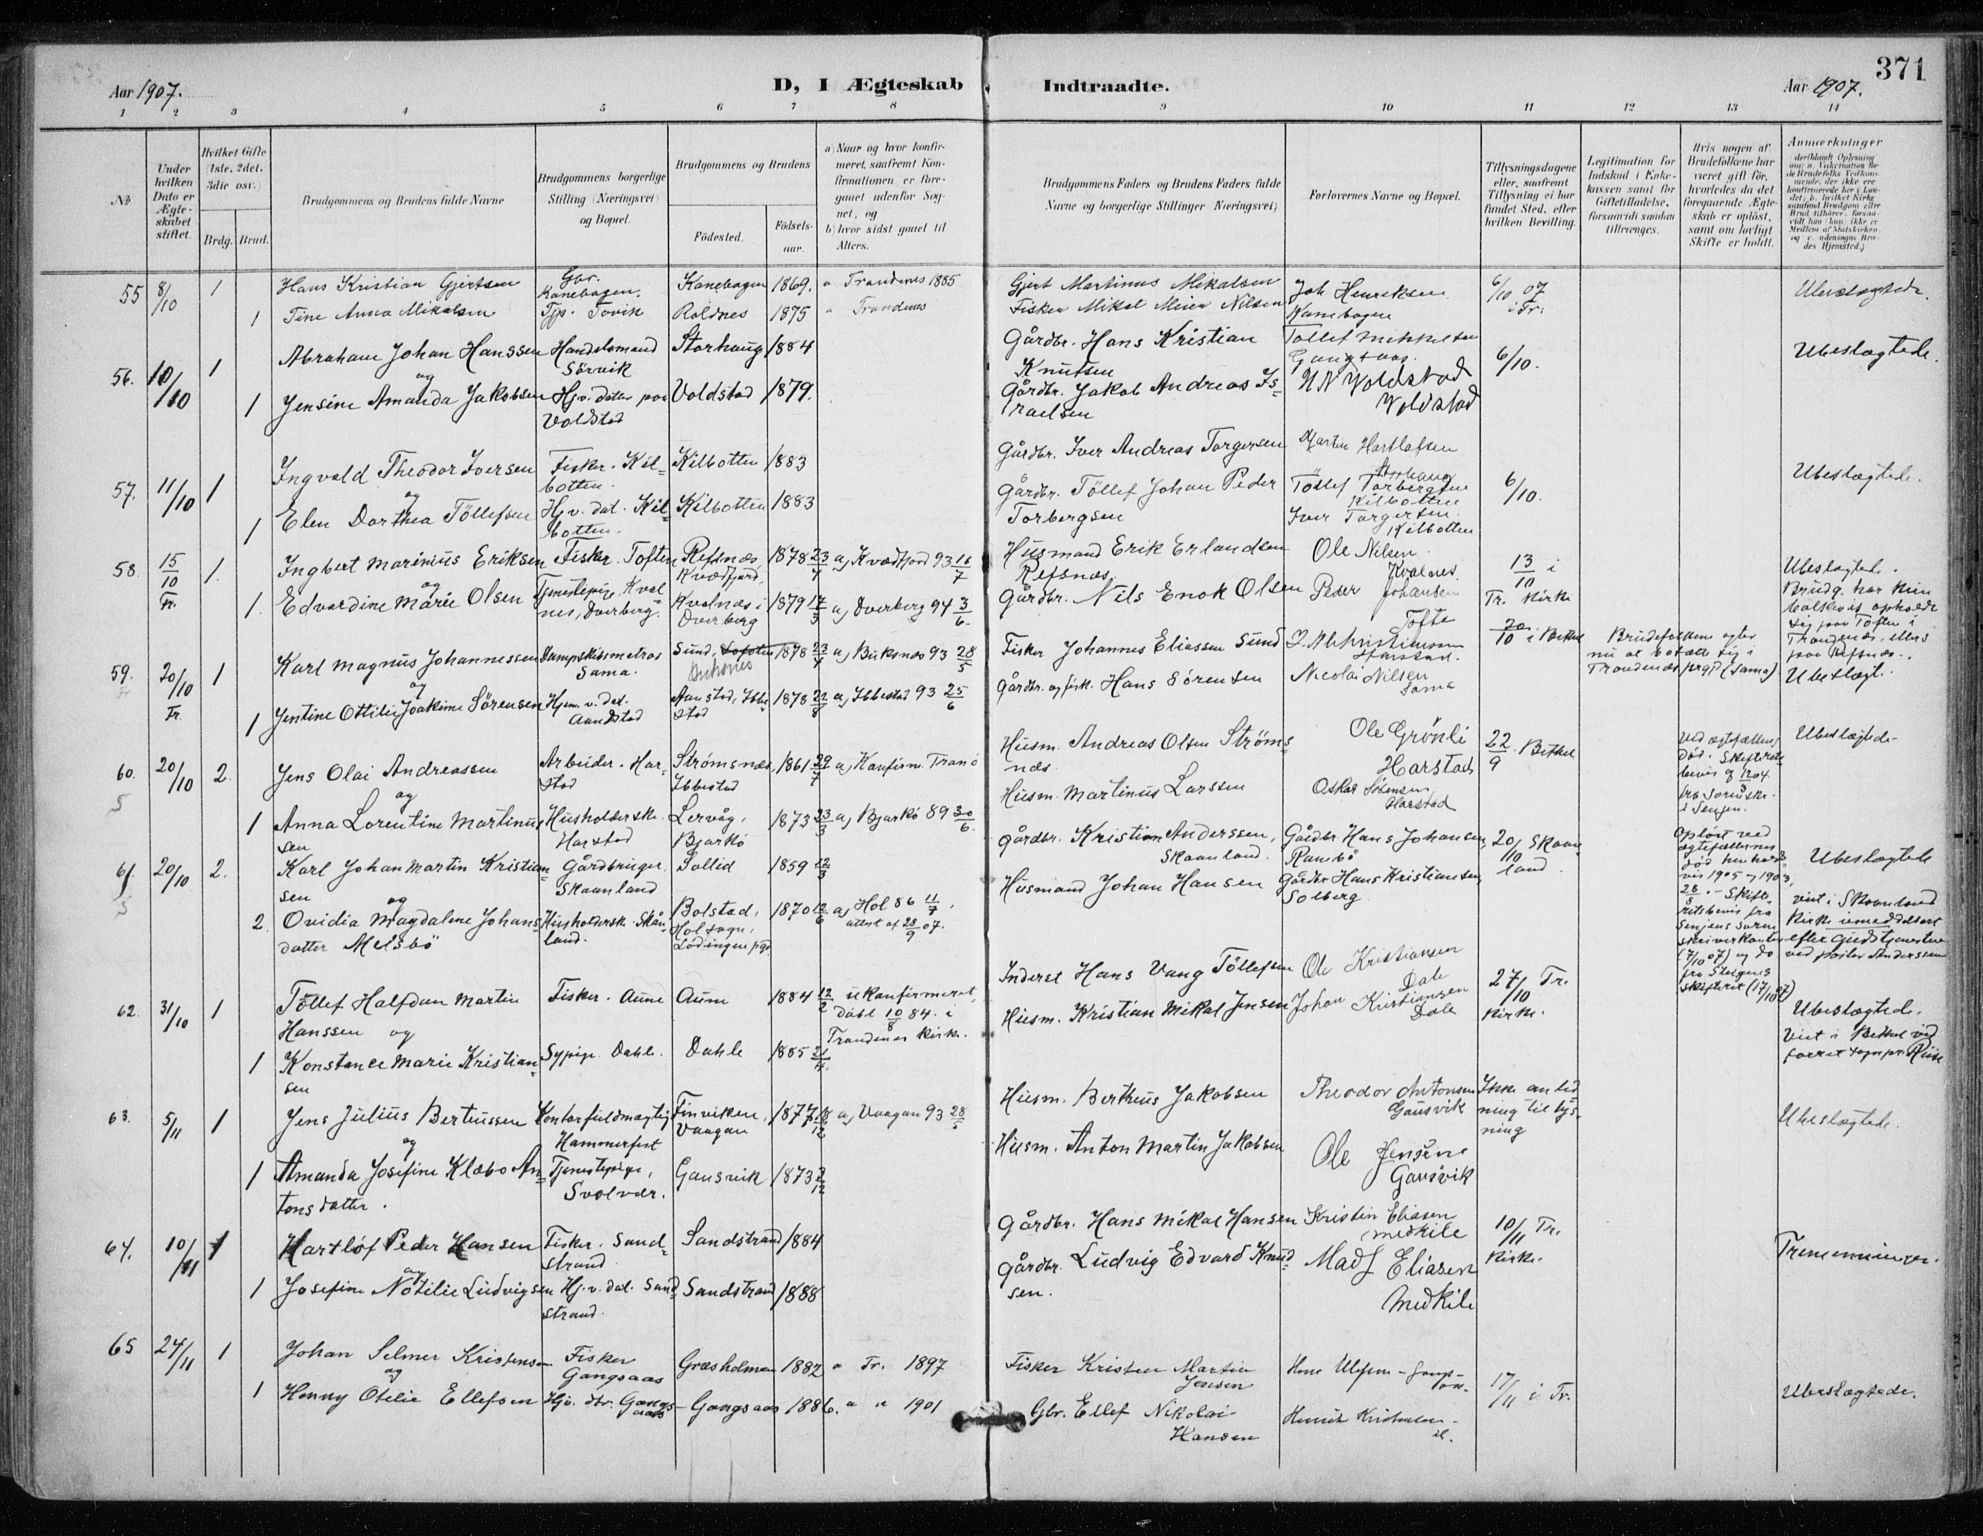 371
Aar 1907.
D, I Ægteskab Indtraadte.
Aar 1907.
1 2 3 4 5 6 7 8 9 10 11 12 13 14
No
Under hvilken Dato er Ægteskabet stiftet.
Hvilket Gifte (1ste, 2det, 3die osv.)
Brdg. Brud.
Brudgommens og Brudens fulde Navne
Brudgommens borgerlige Stilling (Næringsvei) og Bopæl.
Brudgommens og Brudens
Fødested.
Fødselsaar.
a) Naar og hvor konfirmeret, saafremt Konfirmationen er foregaaet udenfor Sognet, og
b) hvor sidst gaaet til Alters.
Brudgommens Faders og Brudens Faders fulde Navne og borgerlige Stillinger (Næringsvei)
Forlovernes Navne og Bopæl.
Tillysningsdagene eller, saafremt Tillysning ei har fundet Sted, efter hvilken Bevilling.
Legitimation for Indskud i Enkekassen samt for Giftetilladelse, forsaavidt saadan tiltrænges.
Hvis nogen af Brudefolkene har været gift før, hvorledes da det foregaaende Ægteskab er opløst, samt om lovligt Skifte er holdt.
Anmærkninger
55 8/10 1 Hans Kristian Gjertsen Gbr. Kanebogen. Kanebogen 1869. a Trondenes 1885 Gjert Martinus Mikalsen Joh Henriksen Kanebogen 6/10 07 i Tr. Ubeslægtede.
1 Tine Anna Mikalsen Tjp. Tovik Roldnes 1875 " Trondenes Fisker Mikal Meier Nilsen
56. 10/10 1 Abraham Johan Hanssen Handelsmand Sørvik Storhaug 1884 Gårdbr. Hans Kristian Knutsen Tollef Mikkelsen Gangsaas. 6/10. Ubeslægtede.
og
1 Jensine Amanda Jakobsen Hj. v. datter paa Voldstad Voldstad 1879. Gårdbr. Jakob Andreas Israelsen H N Voldstad Voldstad
57. 11/10 1 Ingvald Theodor Iversen Fisker. Kilbotten. Kilbotten 1883 Gårdbr. Iver Andreas Torgersen Martin Hartlofsen 6/10. Ubeslægtede.
og
1 Elen Dorthea Töllefsen Hj. v. dat. Kilbotten. Kilbotten 1883 Gårdbr. Töllef Johan Peder Torbergsen Töllef Torbergsen Kilbotten Iver Torgersen. Kilbotten
58. 15/10 Tr. 1. Ingbert Marinius Eriksen Fisker. Toften Refsnes, Kvædfjord, 1878 23/4 a, Kvædfjord 93 16/7 Husmand Erik Erlandsen Refsnæs Ole Nilsen. Kvalnes. 13/10 i Tr. Kirke Ubeslægtede. Brudg. har kun
og
1. Edvardine Marie Olsen Tjenestepige, Kvalnes, Dverberg. Kvalnæs i Dverberg 1879 17/3 a, Dverberg 94 3/6. Gårdbr. Nils Enok Olsen Peder Johansen Tofte
sig paa Toften i Trondenæs, ellers paa Refsnæs.
59. 20/10 Tr. 1 Karl Magnus Johannessen Dampskibsmatros Sama. Sund, 1878 23/4 a, Birksnæs 93 28/5 Fisker Johannes Eliassen Sund Harstad. 20/10 i Betel Brudefolkene agter nu at bosætte sig i Trondenæs prgd (Sama) Ubeslægt.
og
1 Jentine Ottilie Joakime Sörensen Hjem. v. dat. Aandstad Aanstad, Ibbestad 1878 21/8 a, Ibbestad 93 25/6 Gårdbr. og fisk. Hans Sörensen Nicolai Nilsen Sama
60. 20/10 2. Jens Olai Andreassen Arbeider. Harstad Strømsnæs, Ibbestad 1861 29/7 a, Konfirm. Tranö Husm. Andreas Olsen Strömsnæs. Ole Grönli Harstad 22/9 Bethel Ved ægtefællens död. Ubeslægtede
og
1 Anna Lorentine Martinussen Husholderske. Harstad Lervåg, Bjarkö 1873 23/3 a, Bjarkö 89 30/6. Husm. Martinus Larssen Oskar Sörensen Harstad
61 20/10 2. Karl Johan Martin Kristiansen Gårdbruger Skaanland Sollid 1859 12/3 Gårdbr. Kristian Anderssen, Skaanland. Gårdbr Hans Johansen Rambö 20/10 Skaanland. Oplöst ved ægtefællernes död henholdsvis 1905 og 1903, Ubeslægtede
og
2. Ovidia Magdalene Johansdatter Melsbö Husholdersk. Skånland. Bolstad, Hol sogn, Lödingen pgd. 1870 12/6 a, Hol 86 11/7. attest af 28/9 07. Husmand Johan Hansen Gårdbr Hans Kristiansen Solberg. Skifteretsbevis fra Senjens sorenskriverkontor (7/10 07) og do fra Steigens skifteret (17/10 07) viet i Skaanland Kirke umiddelbart efter Gudstjenesten ved pastor Anderssen
62. 31/10 1 Töllef Halfdan Martin Hanssen og Fisker. Aune Aune 1884 12/2 ukonfirmeret, döbt 10/8 84. i Trondenes Kirke. Inderst Hans Vang Töllefsen Ole Kristiansen Dale 27/10 Tr. Kirke. Ubeslægtede.
1 Konstance Marie Kristiansen Sypige. Dahle. Dahle 1885 21/4. Husm. Kristian Mikal Jensen Johan Kristiansen Dale Viet i Bethel ved
63. 5/11 1 Jens Julius Bertiussen Kontorfuldmægtig Hammerfest Finviken, Vaagan 1877 18/12 a, Vaagan 93 28/5 Husm. Bertheus Jakobsen Theodor Antonsen Gausvik Ikke anledning til lysning Ubeslægtede.
og
1 Amanda Josefine Klæbo Antonsdatter. Tjenestepige, Svolvær. Gausvik 1873 2/12 Husm. Anton Martin Jakobsen Ole Jensen Gausvik
64. 10/11 1 Hartlof Peder Hansen Fisker. Sandstrand Sandstrand 1884 Gårdbr. Hans Mikal Hansen Kristin Eliasen Medkile 10/11 Tr. Kirke. Tremenninger.
og
1 Josefine Natilie Ludvigsen Hj. v. dat. Sandstrand. Sandstrand 1888 Gårdbr. Ludvig Edvard Knudsen. Mads Eliasen Medkile
65 24/11 1 Johan Selmer Kristensen Fisker Gangsaas Græsholmen 1882 a Tr. 1897 Fisker Kristen Martin Jensen 17/11 i Tr. Ubeslægtede.
og
1 Henny Otelie Ellefsen Hjv. dtr. Gangsaas Gangsaas 1886. " " 1901 Gbr. Ellef Nikolai Hansen Henrik Kristensen